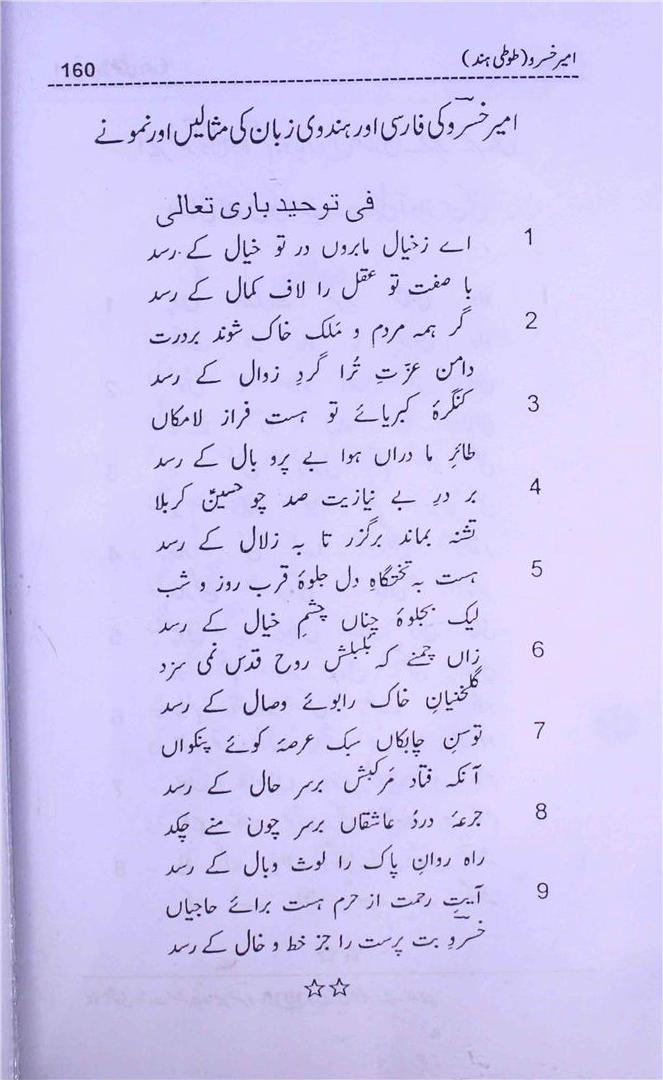 امیر خسرو (طوطیِ ہند)
160
امیر خسروؒ کی فارسی اور ہندوی زبان کی مثالیں اور نمونے
فی توحید باری تعالی
1 اے زخیال مابروں در تو خیال کے رسد
با صفت تو عقل را لاف کمال کے رسد
2 گر ہمہ مردم و مَلک خاک شوند بردرت
دامن عزّتِ تُرا گردِ زوال کے رسد
3 کنگرۂ کبریائے تو ہست فراز لامکاں
طائرِ ما دراں ہوا بے پرو بال کے رسد
4 بر درِ بے نیازیت صد چو حسینؑ کربلا
تشنہ بماند برگزر تا بہ زلال کے رسد
5 ہست بہ تختگاہِ دل جلوۂ قرب روز و شب
لیک بجلوۂ چناں چشمِ خیال کے رسد
6 زاں چمنے کہ بُلبلش روح قدس نمی سزد
گلخنیانِ خاک رابوئے وصال کے رسد
7 توسنِ چابکاں سبک عرصۂ کوئے پنکواں
آنکہ فتاد مَرکبش برسرِ حال کے رسد
8 جرعۂ دردِ عاشقاں برسرِ چون منے چکد
راہ روانِ پاک را لوث وبال کے رسد
9 آیتِ رحمت از حرم ہست برائے حاجیاں
خسروؒ بت پرست را جز خط و خال کے رسد
☆☆